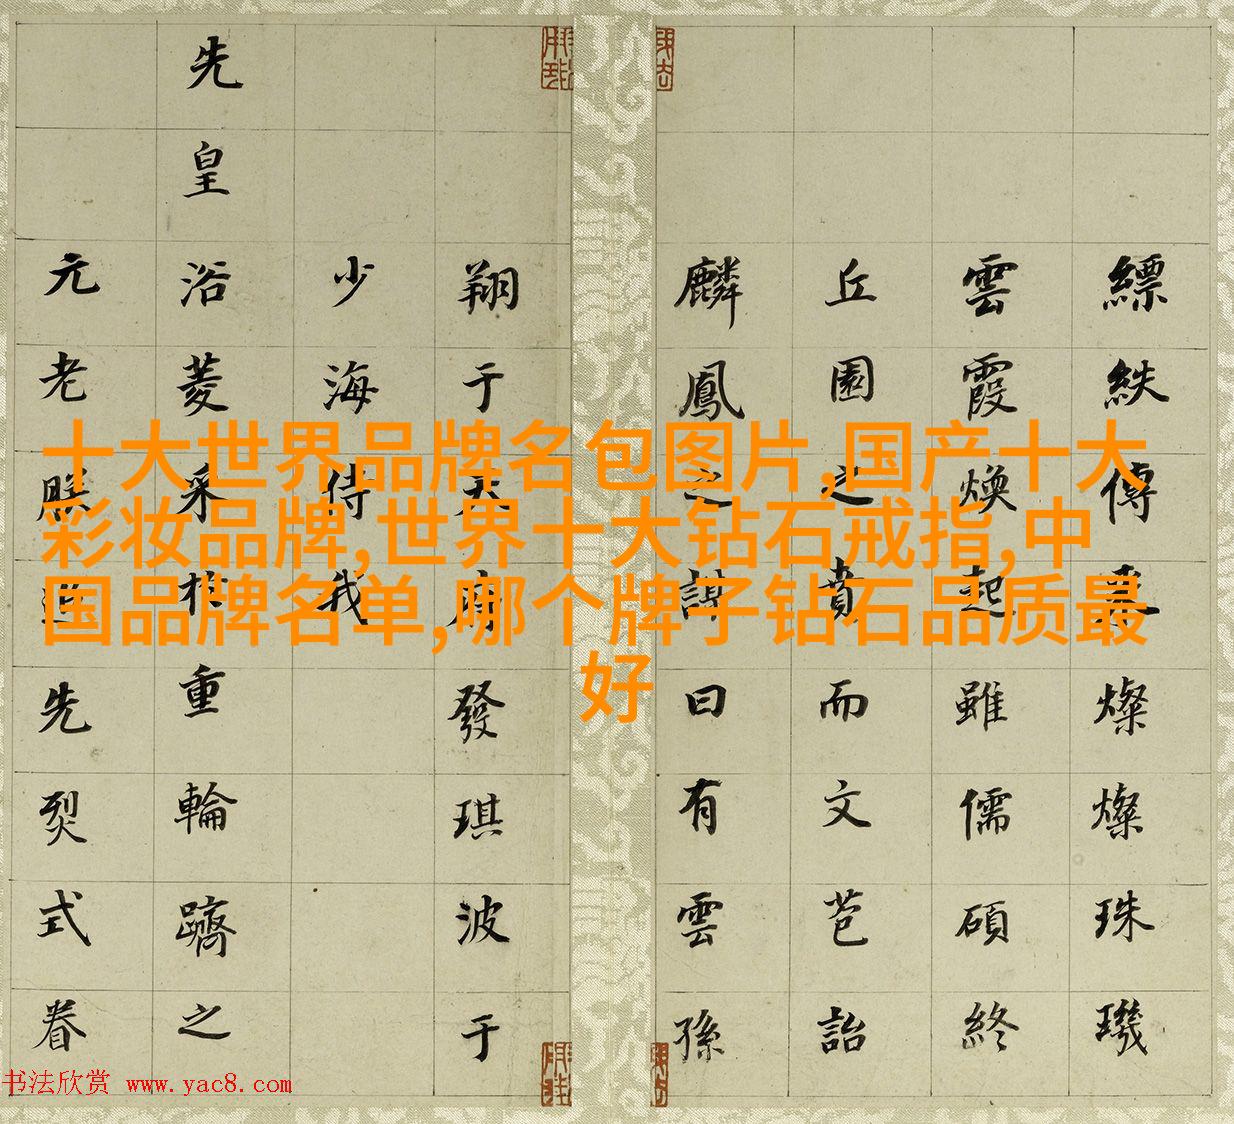 縹紩傳燦燦珠璣
雲霞煥起雖儒碩終
丘園之賁而文芑詒
麟鳳之謀曰有雲孫
翔于天府發琪波于
少海侍我
先皇浴菱采於重輪躋之
元老朕追先烈式眷
十大世界品牌名包图片,国产十大
彩妆品牌,世界十大钻石戒指,中
国品牌名单,哪个牌子钻石品质最
好
书法欣赏 www.yac8.com